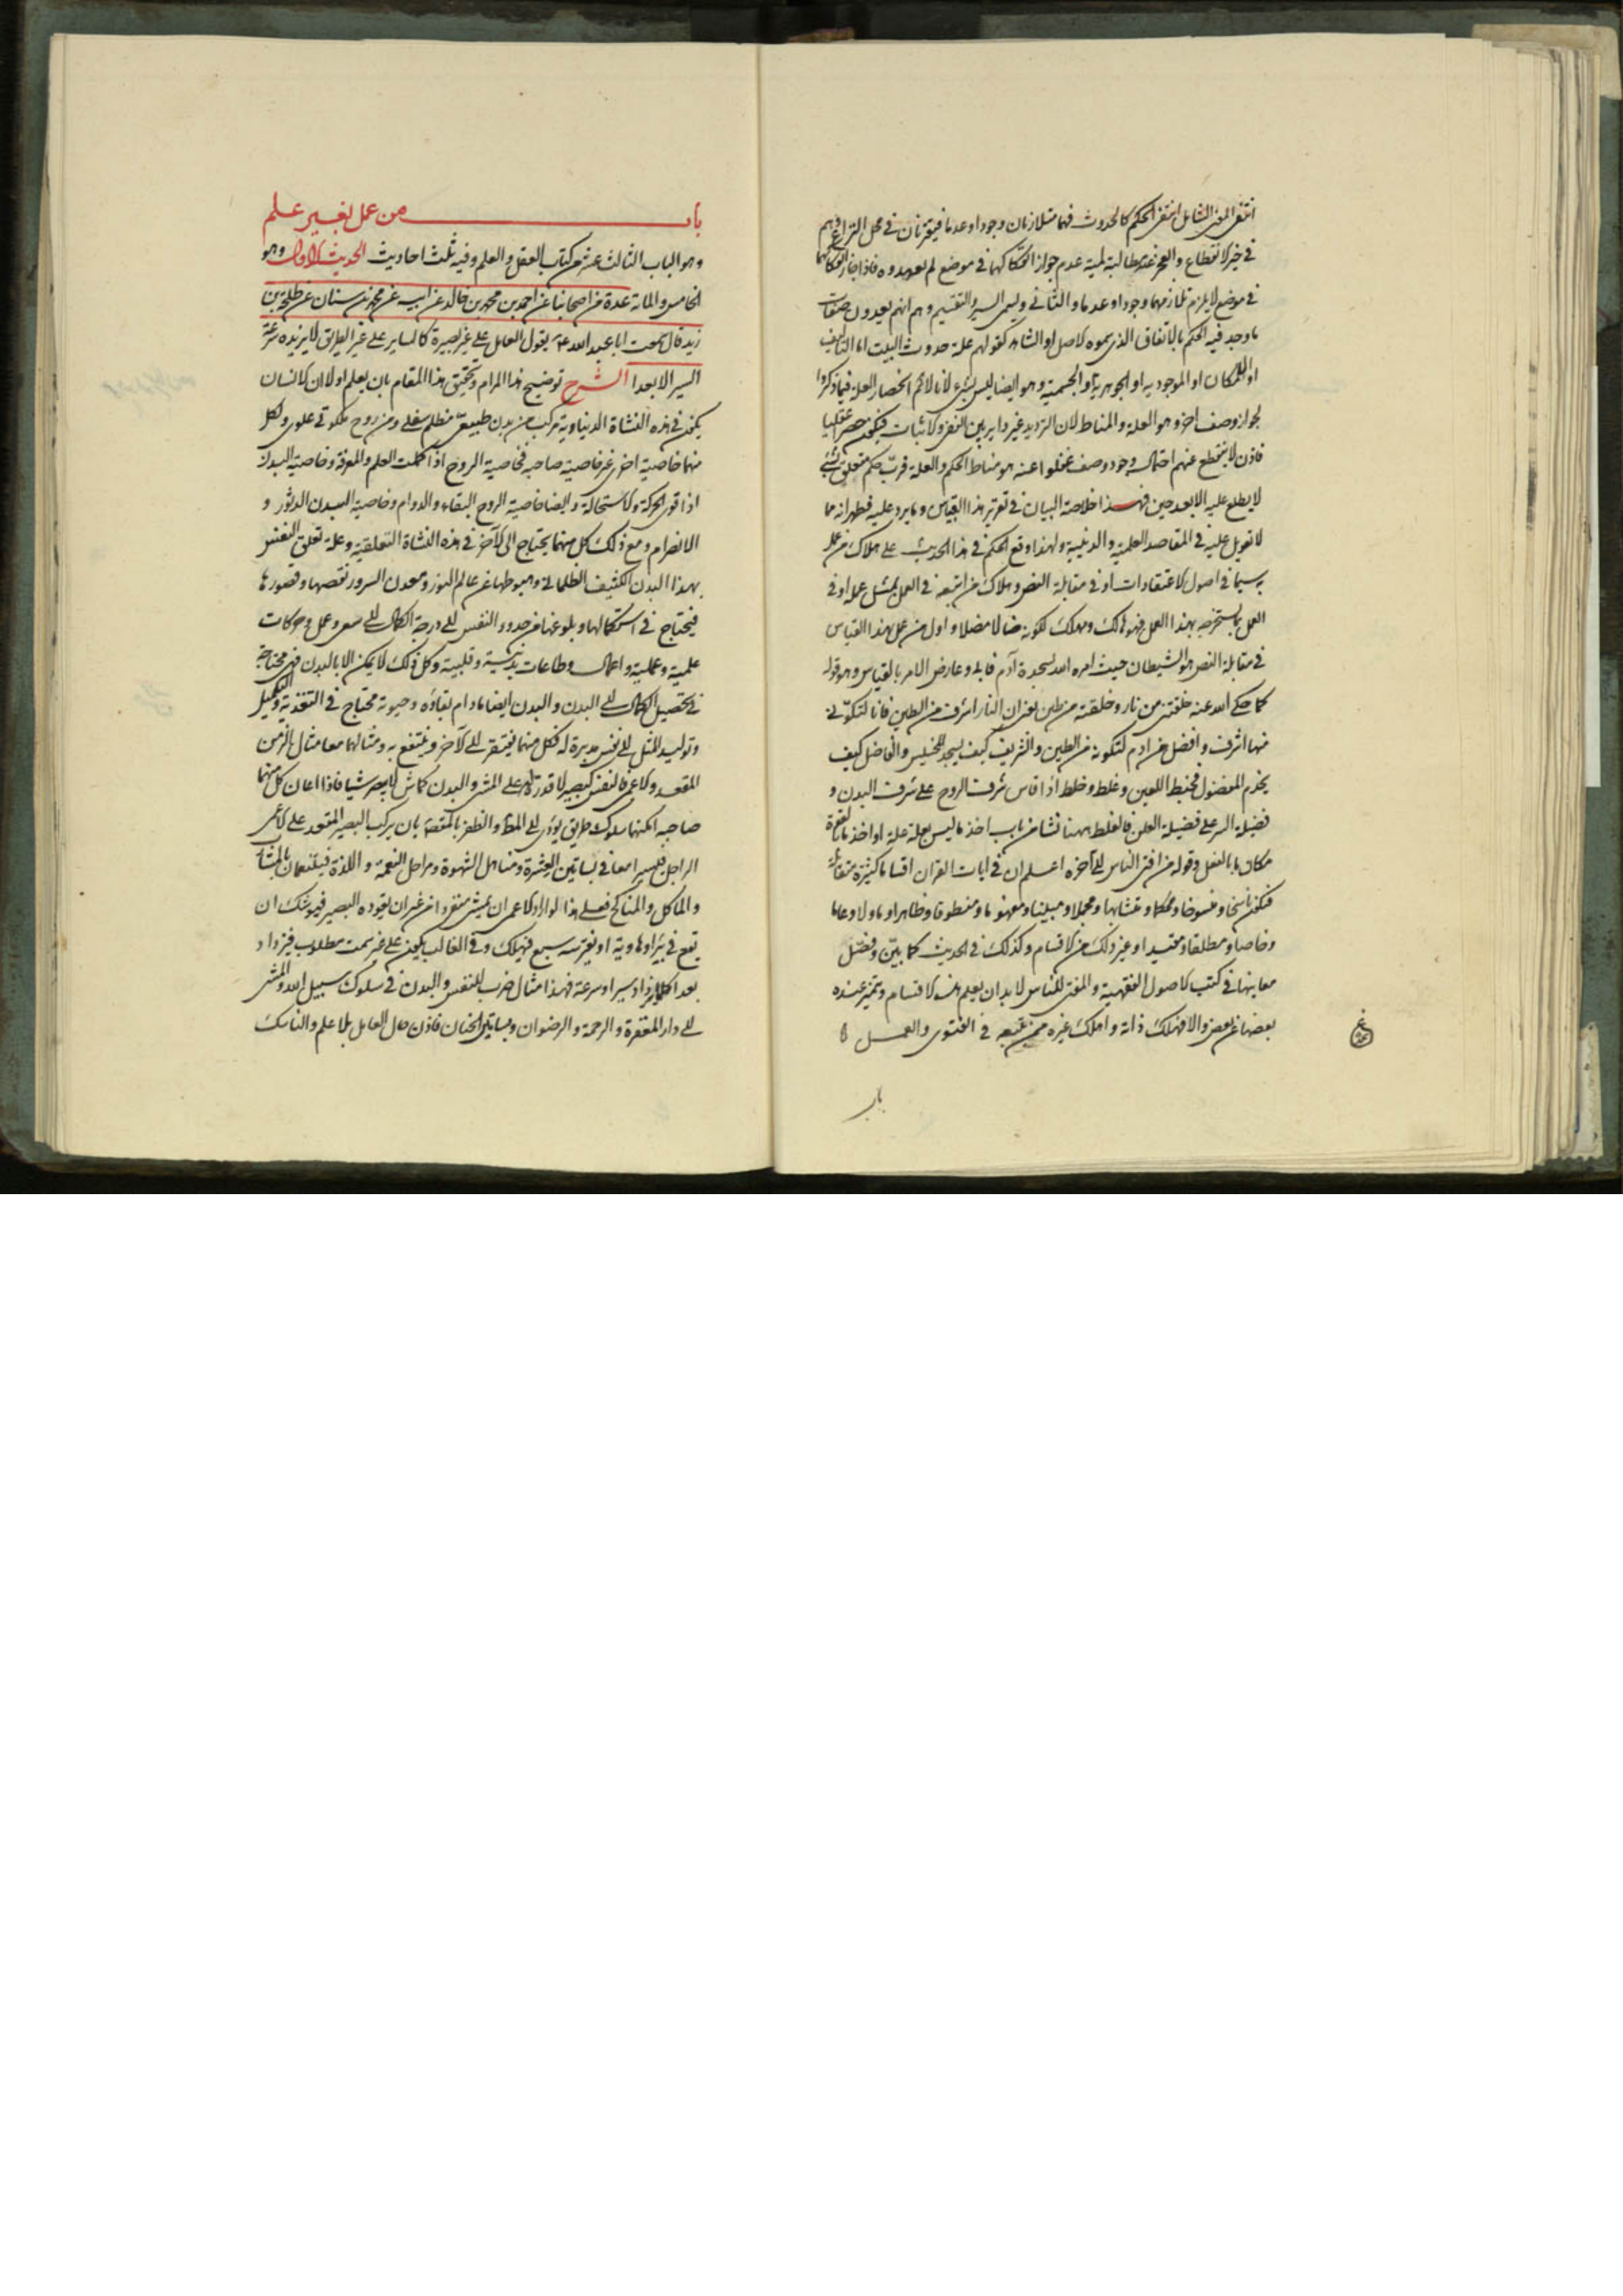 انتفى المعنى الشامل انتفى الحكم كالحدوث فهما متلازمان وجودا وعدما فيقترنان في محل النزاع فهم
في حيز الانقطاع والعجز عند مطالبة لمية عدم جواز انفكاكهما في موضع لم يعهدوه فاذا جاز انفكاكهما
في موضع لا يلزم تلازمهما وجودا وعدما والثاني ويسمى السبر والتقسيم وهم انهم يعدون صفات
ما وجد فيه الحكم بالاتفاق الذي سموه الاصل او الشاهد كقولهم علة حدوث البيت اما التاليف
او الامكان او الموجودية او الجوهرية او الجسمية وهو ايضا ليس بشيء لانا لا نم انحصار العلة فيما ذكروا
لجواز وصف اخر هو العلة والمناط لان الترديد غير داير بين النفي والاثبات فيكون حصرا عقليا
فاذن لا ينقطع عنهم احتمال وجود وصف غفلوا عنه هو مناط الحكم والعلة فرب حكم متعلق بشيء
لا يطلع عليه الا بعد حين فهذا خلاصة البيان في تقرير هذا القياس وما يرد عليه فظهر انه مما
لا تعويل عليه في المقاصد العلمية والدينية ولهذا وقع الحكم في هذا الحديث على هلاك من عمل
به سيما في اصول الاعتقادات او في مقابلة النص وهلاك من اتبعه في العمل بمثل عمله او في
العمل بما يستخرجه بهذا العمل فهو هالك ومهلك لكونه ضالا مضلا واول من عمل بهذا القياس
في مقابلة النص هو الشيطان حيث امره الله لسجدة آدم فابى وعارض الامر بالقياس وهو قوله
كما حكى الله عنه خلقتني من نار وخلقته من طين يعنى ان النار اشرف من الطين فانا لتكوني
منها اشرف وافضل من ادم لتكونه من الطين والشريف كيف يسجد للخسيس والفاضل كيف
يخدم المفضول فخبط اللعين وغلط وخلط اذا قاس شرف الروح على شرف البدن و
فضيلة السر على فضيلة العلن فالغلط ههنا نشا من باب اخذ ما ليس بعلة علة او اخذ ما بالقوة
مكان ما بالفعل وقوله من افتى الناس الى آخره اعلم ان في ايات القران اقساما كثيرة متقابلة
فيكون ناسخا ومنسوخا ومحكما ومتشابها ومجملا ومبينا ومفهوما ومنطوقا وظاهرا وماولا وعاما
وخاصا ومطلقا ومقيدا وغير ذلك من الاقسام وكذلك في الحديث كما بين وفصل
معانيها في كتب الاصول الفقهية والمفتى للناس لا بد ان يعلم هذه الاقسام ويتميز عنده
بعضها عن بعض والا فهلك ذاته واهلك غيره ممن يتبعه في الفتوى والعمل
باب
باب من عمل بغير علم
وهو الباب الثالث عشر من كتاب العقل والعلم وفيه ثلث احاديث الحديث الاول وهو
الخامس والمائة عدة من اصحابنا عن احمد بن محمد بن خالد عن ابيه عن محمد بن سنان عن طلحة بن
زيد قال سمعت ابا عبد الله ع يقول العامل على غير بصيرة كالساير على غير الطريق لا يزيده سرعة
السير الا بعدا الشرح توضيح هذا المرام وتحقيق هذا المقام بان يعلم اولا ان الانسان
يكون في هذه النشاة الدنياوية مركب من بدن طبيعى مظلم سفلي ومن روح ملكوتي علوى ولكل
منهما خاصية اخرى غير خاصية صاحبه فخاصية الروح اذا كملت العلم والمعرفة وخاصية البدن
اذا قوى الحركة والاستحالة وايضا خاصية الروح البقاء والدوام وخاصية البدن الدثور و
الانصرام ومع ذلك كل منهما يحتاج الى الآخر في هذه النشاة التعلقية وعلة تعلق النفس
بهذا البدن الكثيف الظلمانى وهبوطها عن عالم النور ومعدن السرور نقصها وقصورها
فيحتاج في استكمالها وبلوغها من حدود النفس الى درجة الكمال الى سعى وعمل وحركات
علمية وعملية واعمال وطاعات بدنية وقلبية وكل ذلك لا يمكن الا بالبدن فهى محتاجة
في تحصيل الكمال الى البدن والبدن ايضا مادام بقاؤه وحيوته محتاج في التغذية والتكميل
وتوليد المثل الى نفس مدبرة له فكل منهما يفتقر الى الآخر وينتفع به ومثالهما معا مثال الزمن
المقعد والاعمى فالنفس كبصير لا قدرة له على المشى والبدن كماش لا يبصر شيا فاذا اعان كل منهما
صاحبه امكنهما سلوك طريق يؤدى الى المط والظفر بالمقصد بان يركب البصير المقعد على الاعمى
الراجل فليسيرا معا في بساتين العشرة ومناهل الشهوة ومراحل النعمة واللذة فيتنعمان بالمشارب
والماكل والمناكح فعلى هذا لو اراد الاعمى ان يمشى منفردا من غير ان يقوده البصير فيوشك ان
يقع في بئر او هاوية او يفترسه سبع فيهلك وفي الغالب يكون على غير سمت مطلوب فيزداد
بعدا كلما يزداد سيرا وسرعة فهذا مثال ضرب للنفس والبدن في سلوك سبيل الله والمشى
الى دار المغفرة والرحمة والرضوان وبساتين الجنان فاذن حال العامل بلا علم والناسك